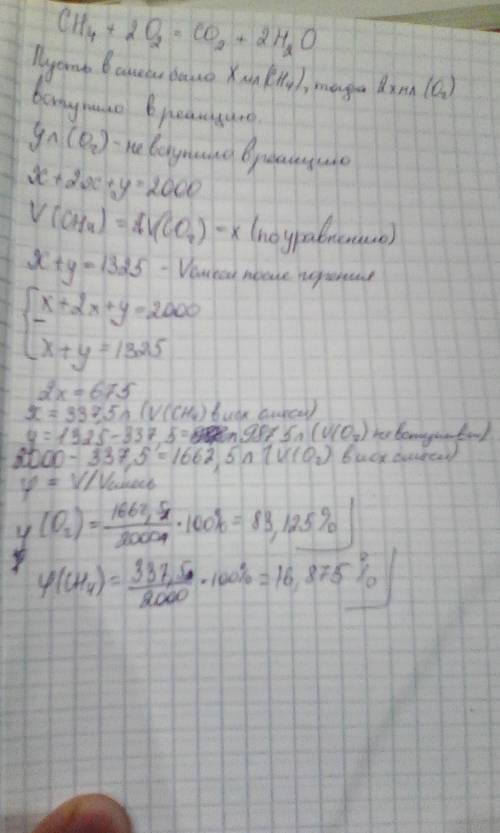 CH₄ + 2O₂ = CO₂ + 2H₂O
Пусть в смеси было X мл (CH₄), тогда 2x мл (O₂)
вступило в реакцию.
y л (O₂) - не вступило в реакцию
x + 2x + y = 2000
V(CH₄) = V(CO₂) = x (по уравнению)
x + y = 1325 - V смеси после горения
x + 2x + y = 2000
x + y = 1325
2x = 675
x = 337,5 л (V(CH₄) в исх смеси)
y = 1325 - 337,5 = 987,5 л (V(O₂) не вступивш)
2000 - 337,5 = 1662,5 л (V(O₂) в исх смеси)
φ = V/Vсмесь
φ(O₂) = 1662,5/2000 · 100% = 83,125%
φ(CH₄) = 337,5/2000 · 100% = 16,875%